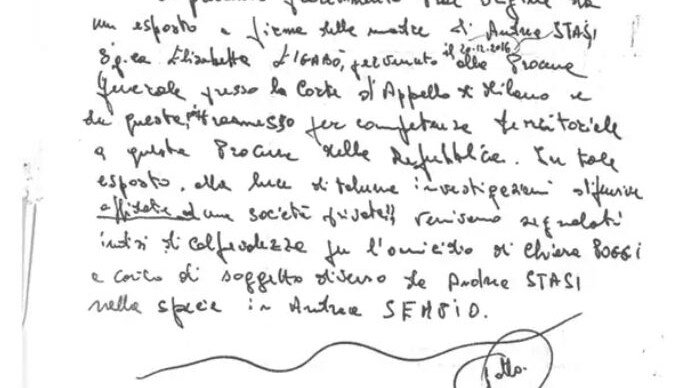 un esposto a firma della madre di Andrea STASI
Sig.ra Elisabetta LIGABÒ, pervenuto il 20.12.2016 alla Procura
Generale presso la Corte d'Appello di Milano e
da questa, poi trasmesso per competenza territoriale
a questa Procura della Repubblica. In tale
esposto, alla luce di talune investigazioni difensive
affidate ad una società privata, venivano segnalati
indizi di colpevolezza per l'omicidio di Chiara POGGI
a carico di soggetto diverso da Andrea STASI
nella specie in Andrea SEMPIO.